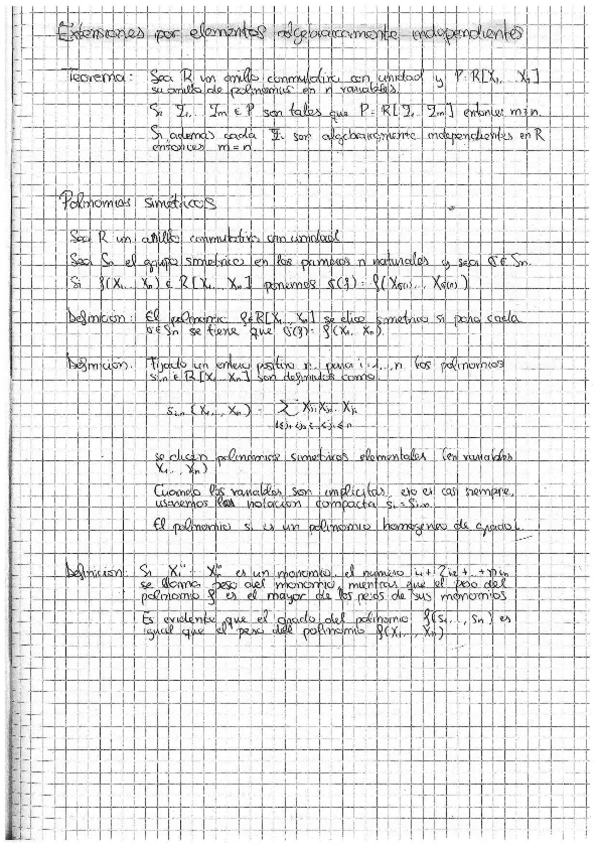 Extensiones por elementos algebraicamente independientes
Teorema: Sea R un anillo conmutativo con unidad y P=R[X₁,...,Xₙ]
su anillo de polinomios en n variables.
Si ... ∈ P son tales que P=R[...] entonces m≥n.
Si además cada ... son algebraicamente independientes en R
entonces m=n.
Polinomios simétricos
Sea R un anillo conmutativo con unidad
Sea Sₙ el grupo simétrico en los primeros n naturales y sea σ∈Sₙ.
Si f(X₁,...,Xₙ) ∈ R[X₁,...,Xₙ] ponemos σ(f)=f(X_σ(1),...,X_σ(n))
Definición: El polinomio f∈R[X₁,...,Xₙ] se dice simétrico si para cada
σ∈Sₙ se tiene que σ(f)=f(X₁,...,Xₙ).
Definición: Fijado un entero positivo n, para i=1,...,n los polinomios
sᵢ,ₙ ∈ R[X₁,...,Xₙ] son definidos como:
sᵢ,ₙ(X₁,...,Xₙ) = Σ Xj₁Xj₂...Xjᵢ
1≤j₁<j₂<...<jᵢ≤n
se dicen polinomios simétricos elementales (en variables
X₁,...,Xₙ)
Cuando las variables son implícitas, eso es casi siempre,
usaremos la notación compacta sᵢ=sᵢ,ₙ.
El polinomio sᵢ es un polinomio homogéneo de grado i.
Definición: Si X₁^i₁...Xₙ^iₙ es un monomio, el número i₁+2i₂+...+niₙ
se llama peso del monomio, mientras que el peso del
polinomio f es el mayor de los pesos de sus monomios
Es evidente que el grado del polinomio f(s₁,...,sₙ) es
igual que el peso del polinomio f(X₁,...,Xₙ)